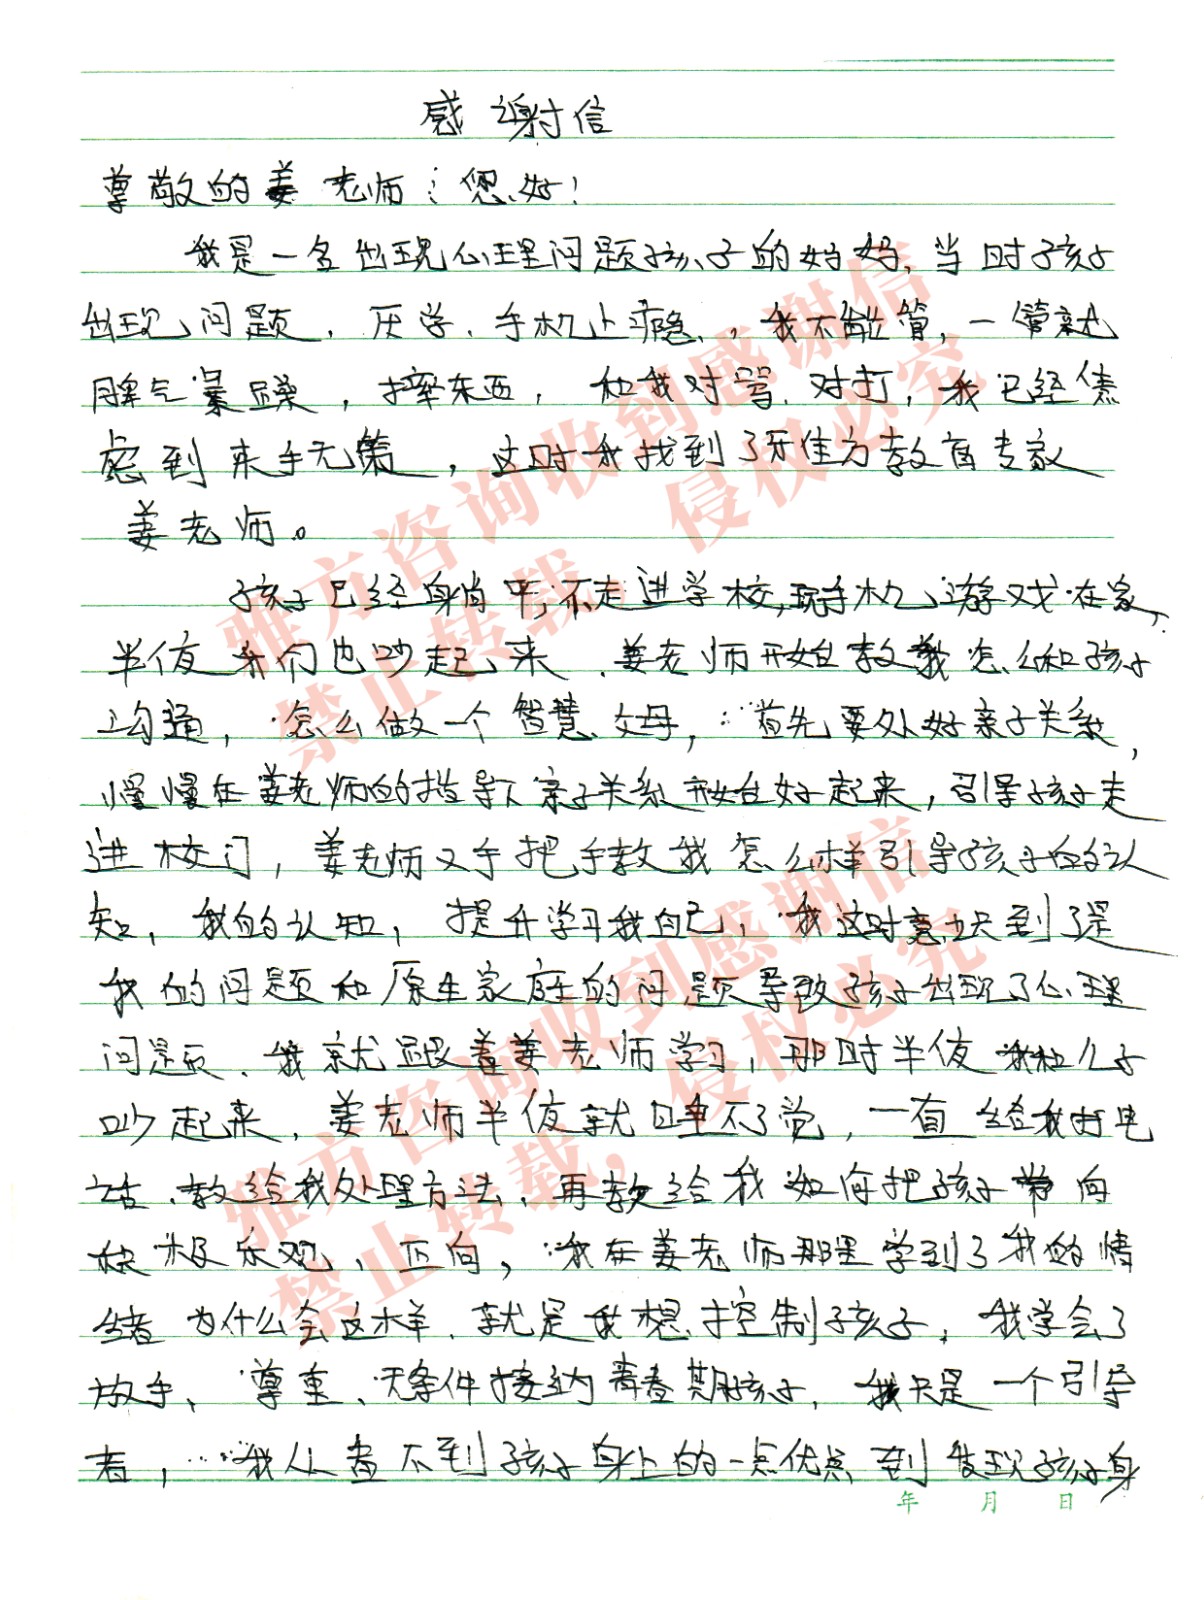 感谢信
尊敬的姜老师：您好！
我是一名出现心理问题孩子的妈妈，当时孩子
出现问题，厌学、手机上瘾，我不能管，一管就
脾气暴躁，摔东西，和我对骂、对打，我已经焦
虑到束手无策，这时我找到了雅方教育专家
姜老师。
孩子已经身躺平，不走进学校，玩手机游戏在家，
半夜我们也吵起来，姜老师开始教我怎么和孩子
沟通，怎么做一个智慧父母，首先要处好亲子关系，
慢慢在姜老师的指导下亲子关系开始好起来，引导孩子走
进校门，姜老师又手把手教我怎么样引导孩子的认
知，我的认知，提升学习我自己，我这时意识到了是
我的问题和原生家庭的问题导致孩子出现了心理
问题、我就跟着姜老师学习，那时半夜我和儿子
吵起来，姜老师半夜就睡不了觉，一直给我打电
话、教给我处理方法，再教给我如何把孩子带向
积极乐观、正向，我在姜老师那里学到了我的情
绪为什么会这样、就是我想控制孩子，我学会了
放手、尊重、无条件接纳青春期孩子，我只是一个引导
者，我从看不到孩子身上的一点优点到发现孩子身
年 月 日
雅方咨询收到感谢信
禁止转载，侵权必究
雅方咨询收到感谢信
禁止转载，侵权必究